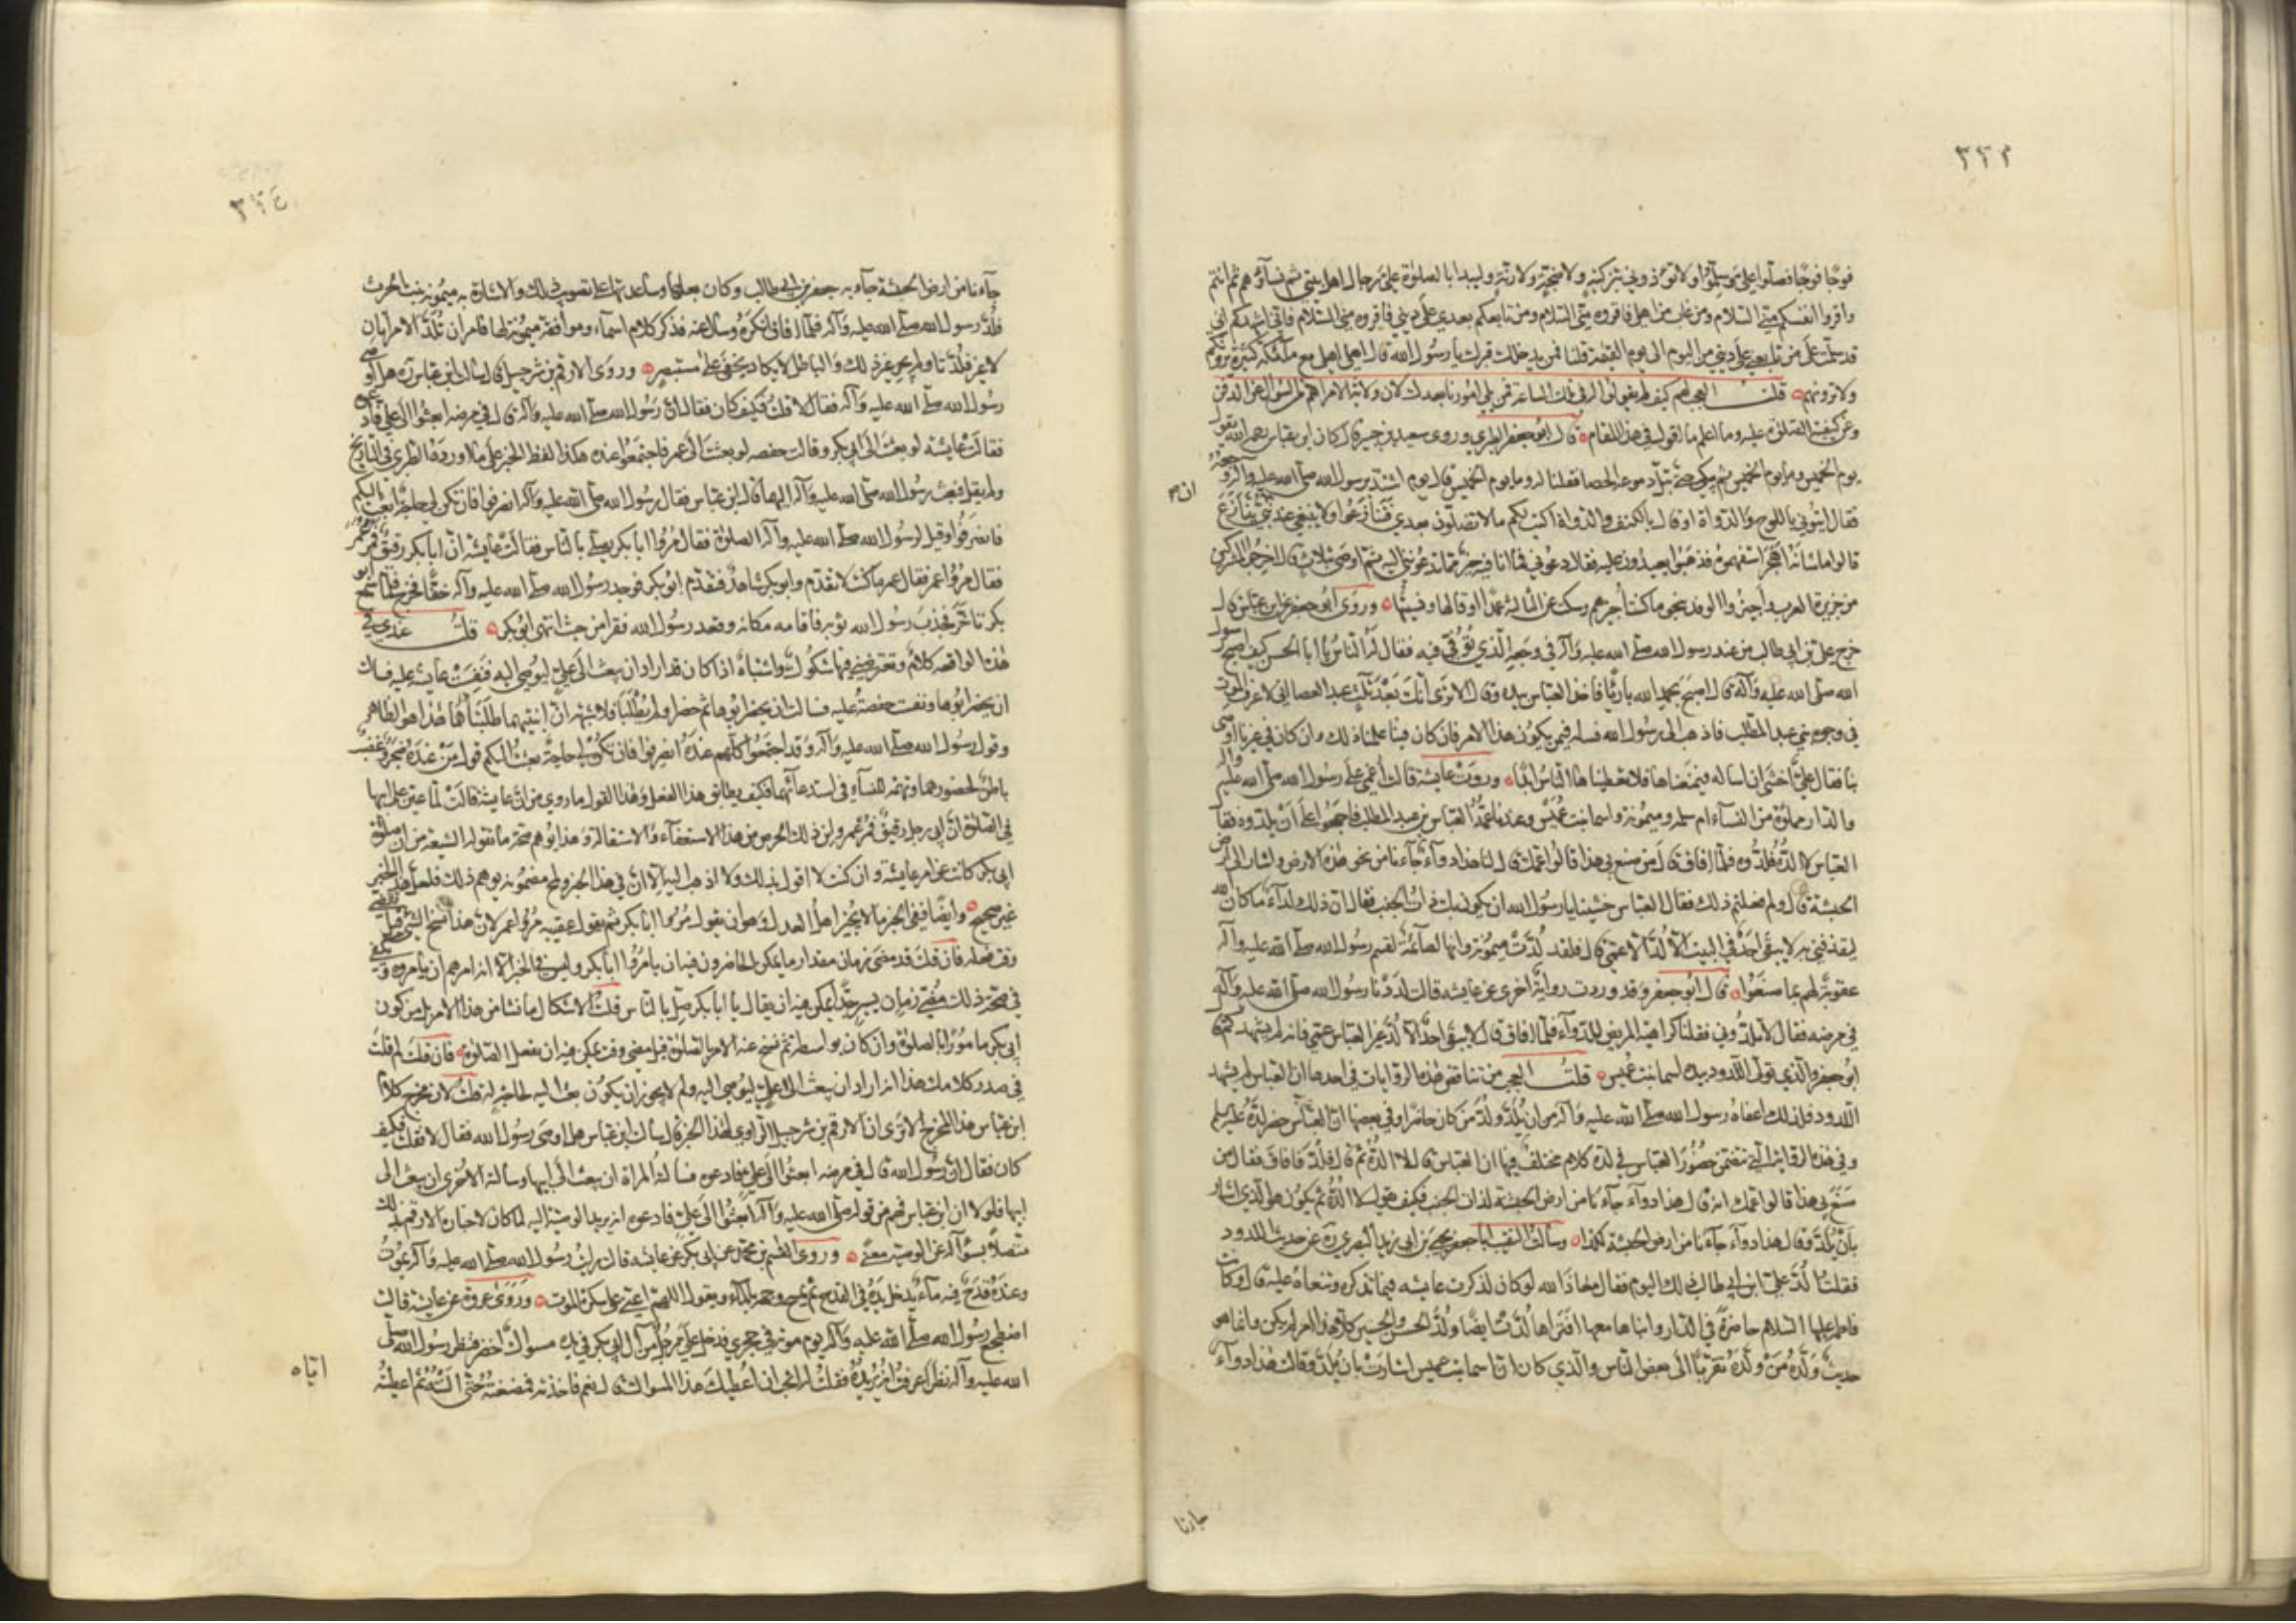 ٣٢٣
فوجا فوجا فصلوا علي وسلموا ولا تؤذوني بتزكية ولا ضجة ولا رنة وليبدأ بالصلوة علي رجال اهل بيتي ثم نساؤهم ثم انتم
واقروا انفسكم مني السلام ومن غاب من اهلي فاقروه مني السلام ومن تابعكم بعدي على ديني فاقروه مني السلام فاني اشهدكم اني
قد سلمت على من تابعني على ديني من اليوم الى يوم القيمة قلنا فمن يدخلك قبرك يا رسول الله قال اهلي مع ملائكة كثيرة يرونكم
ولا ترونهم قلت العجب لهم كيف لم يقولوا له في تلك الساعة فمن يلي امورنا بعدك لان ولاية الامر اهم من السؤال عن الدفن
وعن كيفية الصلوة عليه وما اعلم ما اقول في هذا المقام قال ابو جعفر الطبري وروى سعيد بن جبير قال كان ابن عباس رحمه الله يقول
يوم الخميس وما يوم الخميس ثم يبكي حتى تبل دموعه الحصا فقلنا له وما يوم الخميس قال يوم اشتد برسول الله صلى الله عليه وآله وجعه
فقال ائتوني باللوح والدواة او قال بالكتف والدواة اكتب لكم ما لا تضلون بعدي فتنازعوا ولا ينبغي عند نبي تنازع
قالوا ما شانه اهجر استفهموه فذهبوا يعيدون عليه فقال دعوني فما انا فيه خير مما تدعونني اليه ثم اوصى بثلاث قال اخرجوا المشركين
من جزيرة العرب واجيزوا الوفد بنحو ما كنت اجيزهم وسكت عن الثالثة عمدا او قالها ونسيتها وروى ابو جعفر عن ابن عباس قال
خرج علي بن ابي طالب من عند رسول الله صلى الله عليه وآله في وجعه الذي توفي فيه فقال له الناس يا ابا الحسن كيف اصبح رسول
الله صلى الله عليه وآله قال اصبح بحمد الله بارئا فاخذ العباس بيده وقال الا ترى انك بعد ثلاث عبد العصا اني لا عرف الموت
في وجوه بني عبد المطلب فاذهب الى رسول الله فسله فيمن يكون هذا الامر فان كان فينا علمنا ذلك وان كان في غيرنا اوصى
بنا فقال علي اخشى ان اساله فيمنعناها فلا يعطيناها الناس ابدا وروت عايشة قالت اغمي على رسول الله صلى الله عليه وآله
والدار مملوة من النساء ام سلمة وميمونة واسما بنت عميس وعندنا عمه العباس بن عبد المطلب فاجمعوا على ان يلدوه فقال
العباس لا الده فلدوه فلما افاق قال من صنع بي هذا قالوا عمك قال لنا هذا دواء جاءنا من نحو هذه الارض واشار الى ارض
الحبشة قال ولم فعلتم ذلك فقال العباس خشينا يا رسول الله ان يكون بك ذات الجنب فقال ان ذلك لداء ما كان الله
ليقذفني به لا يبقى احد في البيت الا لد الا عمي قال فلقد لدت ميمونة وانها لصائمة لقسم رسول الله صلى الله عليه وآله
عقوبة لهم بما صنعوا قال ابو جعفر وقد وردت رواية اخرى عن عايشه قالت لددنا رسول الله صلى الله عليه وآله
في مرضه فقال لا تلدوني فقلنا كراهية المريض للدواء فلما افاق قال لا يبقى احد الا لد غير العباس عمي فانه لم يشهدكم قال
ابو جعفر والذي تولى اللدود بيده اسما بنت عميس قلت العجب من تناقض هذه الروايات في احدها ان العباس لم يشهد
اللدود فلذلك اعفاه رسول الله صلى الله عليه وآله من ان يلد ولد من كان حاضرا وفي بعضها ان العباس حضر لده عليه السلم
وفي هذه الرواية التي تتضمن حضور العباس في لده كلام مختلف فيها ان العباس قال لا الده ثم قال فلد فافاق فقال من
صنع بي هذا قالوا عمك انه قال هذا دواء جاءنا من ارض الحبشة لذات الجنب فكيف يقول لا الده ثم يكون هو الذي اشار
بان يلد وقال هذا دواء جاءنا من ارض الحبشة لكذا وسألت النقيب ابا جعفر يحيى بن ابي زيد البصري ره عن حديث اللدود
فقلت الد علي ابن ابي طالب ذلك اليوم فقال معاذ الله لو كان لد لذكرت عايشه فيما تذكره وتنعاه عليه قال وكانت
فاطمة عليها السلام حاضرة في الدار وابناها معها افتراها لدت ايضا ولد الحسن والحسين كلا وهذا امر لم يكن وانما هو
حديث ولده من ولده تقربا الى بعض الناس والذي كان ان اسما بنت عميس اشارت بان يلد وقالت هذا دواء
جاءنا
٣٢٤
جاءنا من ارض الحبشة جاء به جعفر بن ابي طالب وكان بعلها وساعدتها على تصويب ذلك والاشارة به ميمونه بنت الحرث
فلد رسول الله صلى الله عليه وآله فلما افاق انكره وسال عنه فذكر كلام اسماء وموافقة ميمونة لها فامر ان تلد الامراتان
لا غير فلدتا ولم يجر غير ذلك والباطل لا يكاد يخفى على مستبصر وروى الارقم بن شرحبيل قال سالت ابن عباس ره هل اوصى
رسول الله صلى الله عليه وآله فقال لا قلت فكيف كان فقال ان رسول الله صلى الله عليه وآله قال في مرضه ابعثوا الى علي فادعوه
فقالت عايشه لو بعثت الى ابي بكر وقالت حفصه لو بعثت الى عمر فاجتمعوا عنده هكذا لفظ الخبر على ما اورده الطبري في التاريخ
ولم يقل فبعث رسول الله صلى الله عليه وآله اليهما قال ابن عباس فقال رسول الله صلى الله عليه وآله انصرفوا فان تكن لي حاجة ابعث اليكم
فانصرفوا وقيل لرسول الله صلى الله عليه وآله الصلوة فقال مروا ابا بكر يصلي بالناس فقالت عايشه ان ابا بكر رقيق فمر عمر
فقال مروا عمر فقال عمر ما كنت لاتقدم وابو بكر شاهد فتقدم ابو بكر فوجد رسول الله صلى الله عليه وآله خفة فخرج فلما سمع ابو
بكر تاخر فجذب رسول الله ثوبه فاقامه مكانه وقعد رسول الله فقرا من حيث انتهى ابو بكر قلت عندي في
هذه الواقعه كلام وتعترضني فيها شكوك واشتباه اذا كان قد اراد ان يبعث الى علي ليوصي اليه فنفست عايشه عليه فسالت
ان يحضر ابوها ونفست حفصة عليه فسالت ان يحضر ابوها ثم حضرا ولم يطلبا فلا شبهة ان ابنتيهما طلبتاهما هذا هو الظاهر
وقول رسول الله صلى الله عليه وآله وقد اجتمعوا كلهم عنده انصرفوا فان تكن لي حاجة بعثت اليكم قول من عنده ضجر وغضب
باطن لحضورهما وتهمه للنساء في استدعائهما فكيف يطابق هذا الفعل وهذا القول ما روي من ان عايشه قالت لما عين على ابيها
في الصلوة ان ابي رجل رقيق فمر عمر واين ذلك الحرص من هذا الاستعفاء والاستقالة وهذا يوهم صحة ما تقوله الشيعة من ان صلوة
ابي بكر كانت عن امر عايشه وان كنت لا اقول بذلك ولا اذهب اليه الا ان في هذا الخبر ولمح مضمونه يوهم ذلك فلعل هذا الخبر
غير صحيح وايضا ففي الخبر ما لا يجيزه اهل العدل وهو ان يقول مروا ابا بكر ثم يقول عقيبه مروا عمر لان هذا نسخ الشيء قبل تقضي
وقت فعله فان قلت قد مضى زمان مقدار ما يمكن الحاضرون فيه ان يامروا ابا بكر وليس في الخبر الا انه امرهم ان يامروه ويكفي
في صحة ذلك مضي زمان يسير جدا يمكن فيه ان يقال يا ابا بكر صل بالناس قلت الاشكال ما نشا من هذا الامر بل من كون
ابي بكر مامورا بالصلوة وان كان بواسطة ثم نسخ عنه الامر بالصلوة قبل مضي وقت يمكن فيه ان يفعل الصلوة فان قلت لم قلت
في صدر كلامك هذا انه اراد ان يبعث الى علي ليوصي اليه ولم لا يجوز ان يكون بعث اليه لحاجة له قلت لان مخرج كلام
ابن عباس هذا المخرج الا ترى ان الارقم بن شرحبيل الراوي لهذا الخبر قال سالت ابن عباس هل اوصى رسول الله فقال لا فقلت فكيف
كان فقال ان رسول الله قال في مرضه ابعثوا الى علي فادعوه فسالته المراة ان يبعث الى ابيها وسالته الاخرى ان يبعث الى
ابيها فلولا ان ابن عباس فهم من قوله صلى الله عليه وآله ابعثوا الى علي فادعوه انه يريد الوصية اليه لما كان لاخبار الارقم بذلك
متصلا بسؤاله عن الوصيه معنى وروى القسم بن محمد بن ابي بكر عن عايشه قال رايت رسول الله صلى الله عليه وآله يموت
وعنده قدح فيه ماء يدخل يده في القدح ثم يمسح وجهه بالماء ويقول اللهم اعني على سكرة الموت وروى عروة عن عايشه قالت
اضطجع رسول الله صلى الله عليه وآله يوم موته في حجري فدخل علي رجل من آل ابي بكر في يده مسواك اخضر فنظر رسول الله صلى
الله عليه وآله نظرا عرفت انه يريده فقلت له اتحب ان اعطيك هذا المسواك قال نعم فاخذته فمضغته حتى النته ثم اعطيته
اياه